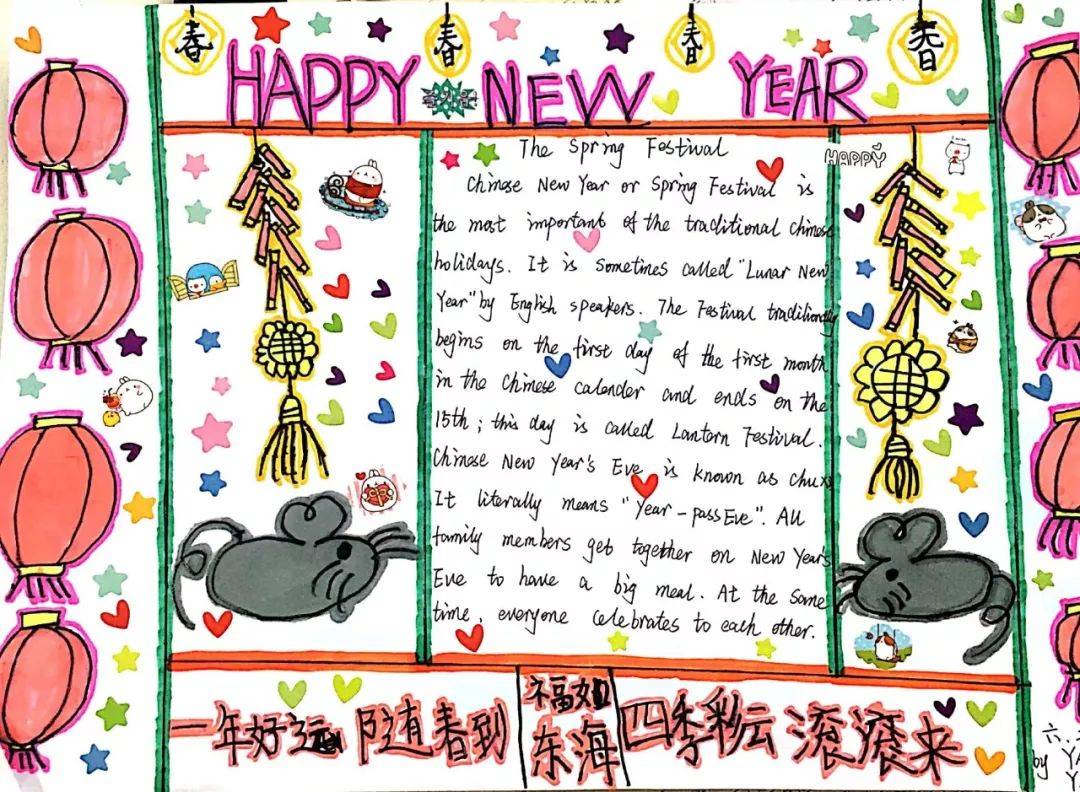 春 春 春 春
HAPPY NEW YEAR
The Spring Festival
HAPPY
Chinese New Year or Spring Festival is
the most important of the traditional chinese
holidays. It is sometimes called "Lunar New
Year" by English speakers. The Festival traditionally
begins on the first day of the first month
in the Chinese calender and ends on the
15th; this day is called Lantern Festival.
Chinese New Year's Eve is known as chuxi
It literally means "Year-passEve". All
family members get together on New Years
Eve to have a big meal. At the same
time, everyone celebrates to each other.
一年好运 随春到
福如
东海
四季彩云 滚滚来
六.
by YA
Y